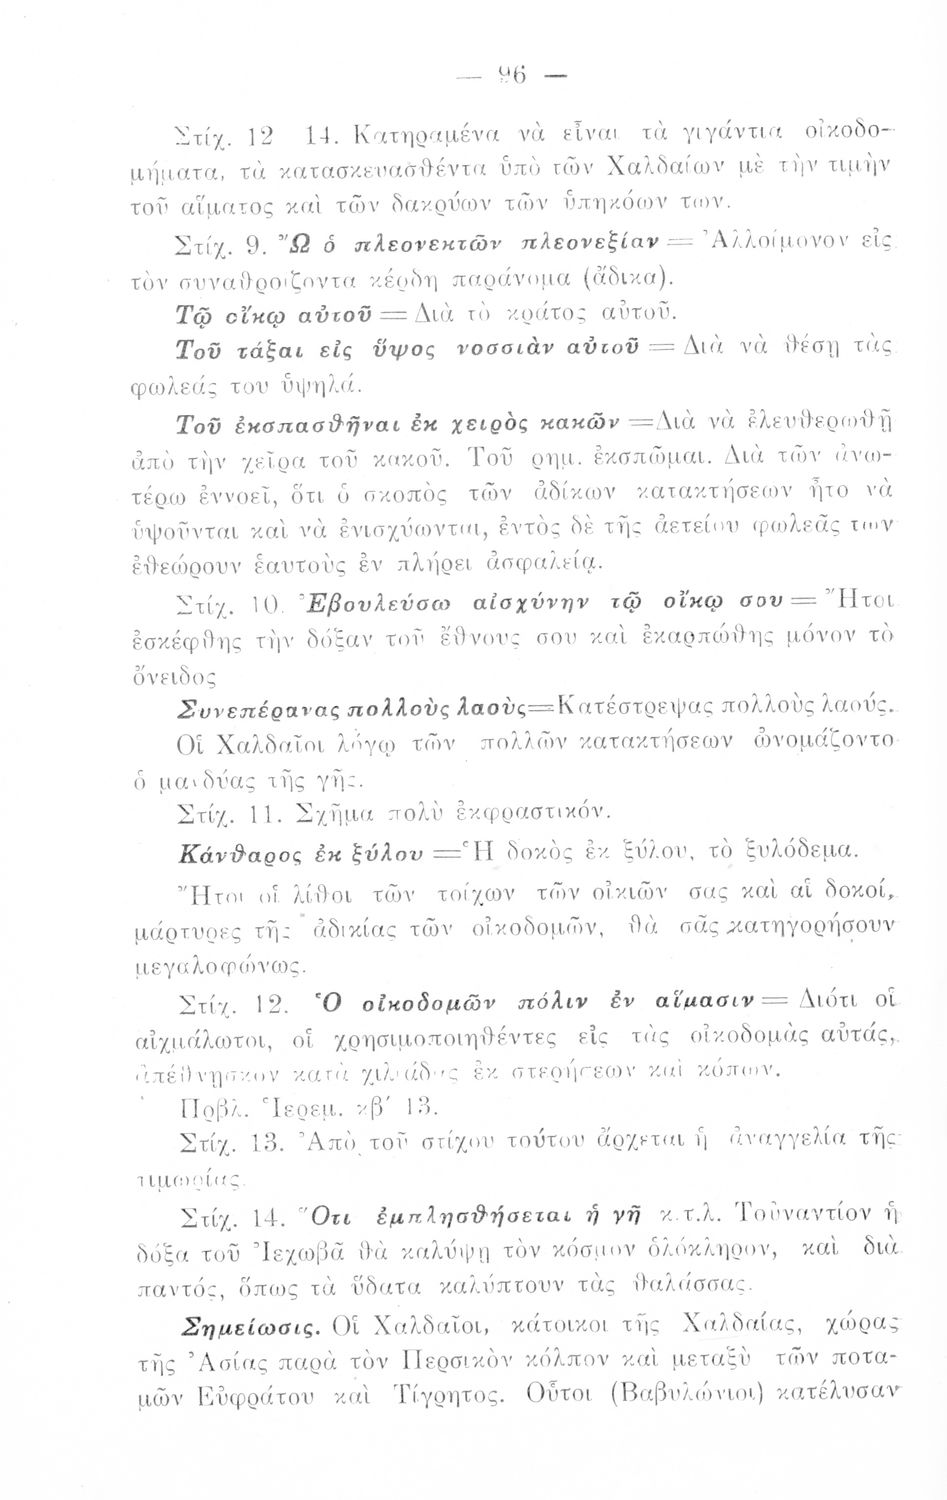 — 96 —
Στίχ. 12 14. Κατηραμένα νὰ εἶναι τὰ γιγάντια οἰκοδο-
μήματα, τὰ κατασκευασθέντα ὑπὸ τῶν Χαλδαίων μὲ τὴν τιμὴν
τοῦ αἵματος καὶ τῶν δακρύων τῶν ὑπηκόων των.
Στίχ. 9. Ὢ ὁ πλεονεκτῶν πλεονεξίαν = Ἀλλοίμονον εἰς
τὸν συναθροίζοντα κέρδη παράνομα (ἄδικα).
Τῷ οἴκῳ αὐτοῦ = Διὰ τὸ κράτος αὐτοῦ.
Τοῦ τάξαι εἰς ὕψος νοσσιὰν αὐτοῦ = Διὰ νὰ θέσῃ τὰς
φωλεάς του ὑψηλά.
Τοῦ ἐκσπασθῆναι ἐκ χειρὸς κακῶν = Διὰ νὰ ἐλευθερωθῇ
ἀπὸ τὴν χεῖρα τοῦ κακοῦ. Τοῦ ρημ. ἐκσπῶμαι. Διὰ τῶν ἀνω-
τέρω ἐννοεῖ, ὅτι ὁ σκοπὸς τῶν ἀδίκων κατακτήσεων ἦτο νὰ
ὑψοῦνται καὶ νὰ ἐνισχύωνται, ἐντὸς δὲ τῆς ἀετείου φωλεᾶς των
ἐθεώρουν ἑαυτοὺς ἐν πλήρει ἀσφαλείᾳ.
Στίχ. 10. Ἐβουλεύσω αἰσχύνην τῷ οἴκῳ σου = Ἤτοι
ἐσκέφθης τὴν δόξαν τοῦ ἔθνους σου καὶ ἐκαρπώθης μόνον τὸ
ὄνειδος
Συνεπέρανας πολλοὺς λαοὺς=Κατέστρεψας πολλοὺς λαούς.
Οἱ Χαλδαῖοι λόγῳ τῶν πολλῶν κατακτήσεων ὠνομάζοντο
ὁ μανδύας τῆς γῆς.
Στίχ. 11. Σχῆμα πολὺ ἐκφραστικόν.
Κάνθαρος ἐκ ξύλου = Ἡ δοκὸς ἐκ ξύλου, τὸ ξυλόδεμα.
Ἤτοι οἱ λίθοι τῶν τοίχων τῶν οἰκιῶν σας καὶ αἱ δοκοί,
μάρτυρες τῆς ἀδικίας τῶν οἰκοδομῶν, θὰ σᾶς κατηγορήσουν
μεγαλοφώνως.
Στίχ. 12. Ὁ οἰκοδομῶν πόλιν ἐν αἵμασιν = Διότι οἱ
αἰχμάλωτοι, οἱ χρησιμοποιηθέντες εἰς τὰς οἰκοδομὰς αὐτάς,
ἀπέθνησκον κατὰ χιλιάδας ἐκ στερήσεων καὶ κόπων.
Πρβλ. Ἱερεμ. κβ´ 13.
Στίχ. 13. Ἀπὸ τοῦ στίχου τούτου ἄρχεται ἡ ἀναγγελία τῆς
τιμωρίας.
Στίχ. 14. Ὅτι ἐμπλησθήσεται ἡ γῆ κ.τ.λ. Τοὐναντίον ἡ
δόξα τοῦ Ἰεχωβᾶ θὰ καλύψῃ τὸν κόσμον ὁλόκληρον, καὶ διὰ
παντός, ὅπως τὰ ὕδατα καλύπτουν τὰς θαλάσσας.
Σημείωσις. Οἱ Χαλδαῖοι, κάτοικοι τῆς Χαλδαίας, χώρας
τῆς Ἀσίας παρὰ τὸν Περσικὸν κόλπον καὶ μεταξὺ τῶν ποτα-
μῶν Εὐφράτου καὶ Τίγρητος. Οὗτοι (Βαβυλώνιοι) κατέλυσαν